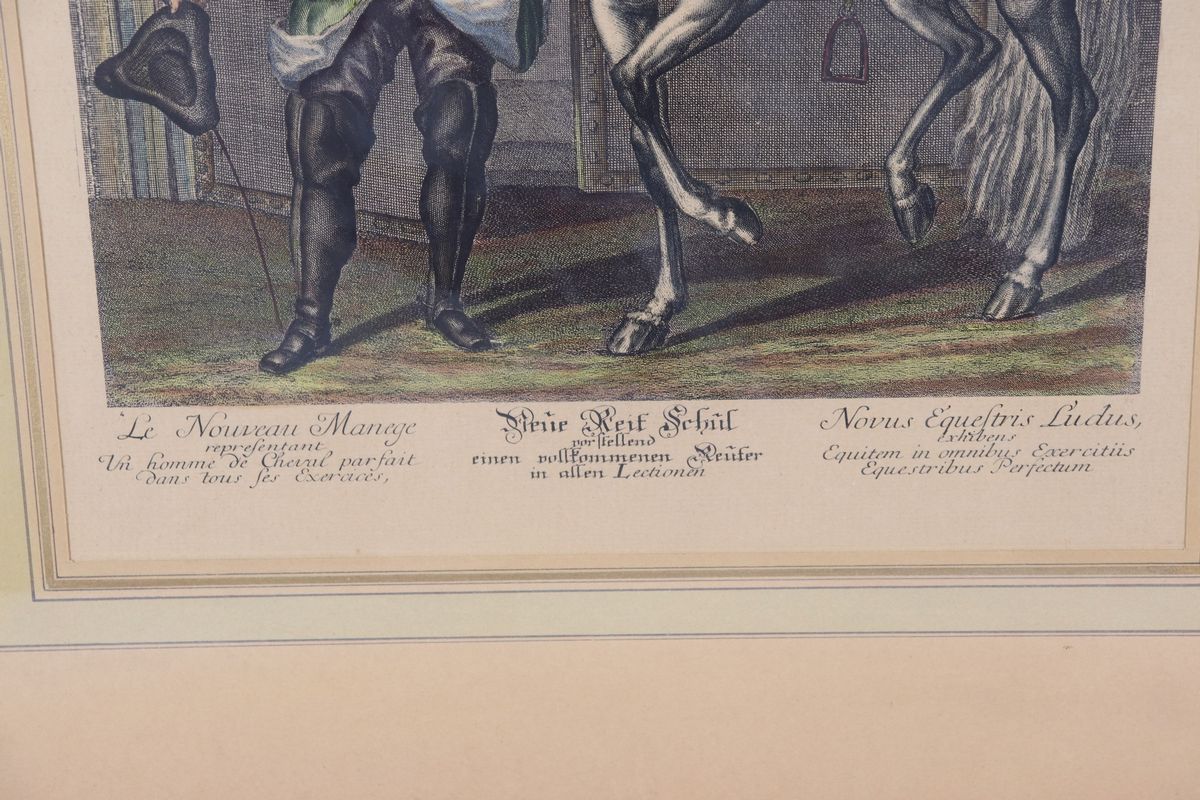 Le Nouveau Manege
repreſentant
Un homme de Cheval parfait
dans tous ſes Exercices,
Neue Reit Schul
vorſtellend
einen vollkommenen Reuter
in allen Lectionen
Novus Equeſtris Ludus,
exhibens
Equitem in omnibus Exercitiis
Equestribus Perfectum